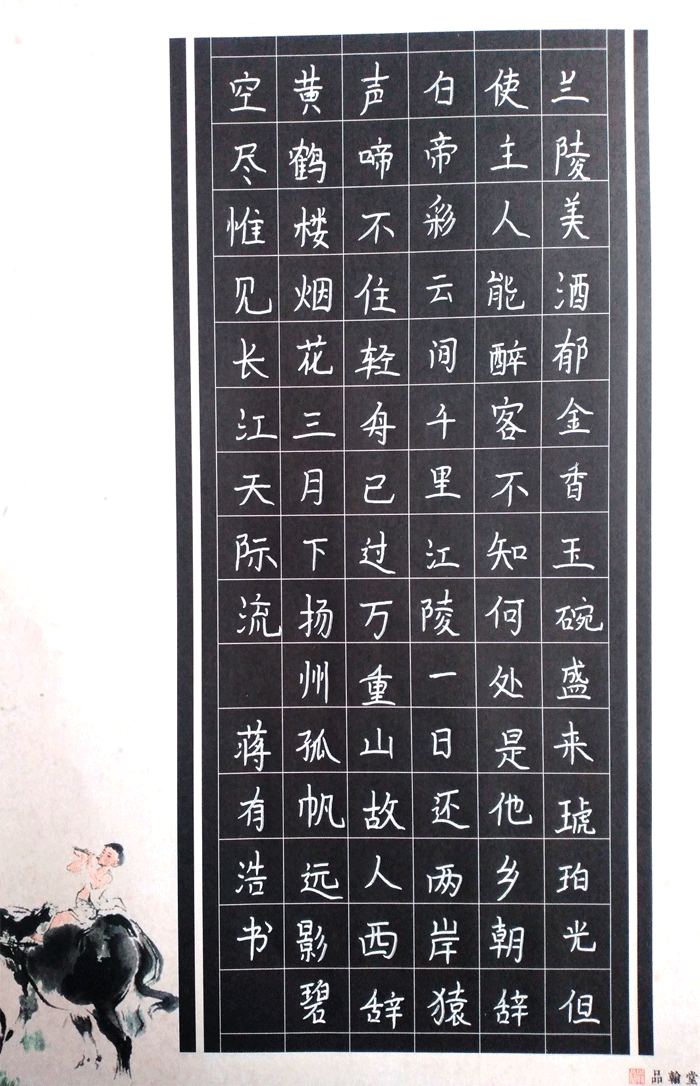 兰陵美酒郁金香玉碗盛来琥珀光但
使主人能醉客不知何处是他乡朝辞
白帝彩云间千里江陵一日还两岸猿
声啼不住轻舟已过万重山故人西辞
黄鹤楼烟花三月下扬州孤帆远影碧
空尽惟见长江天际流 蒋有浩书
品翰堂